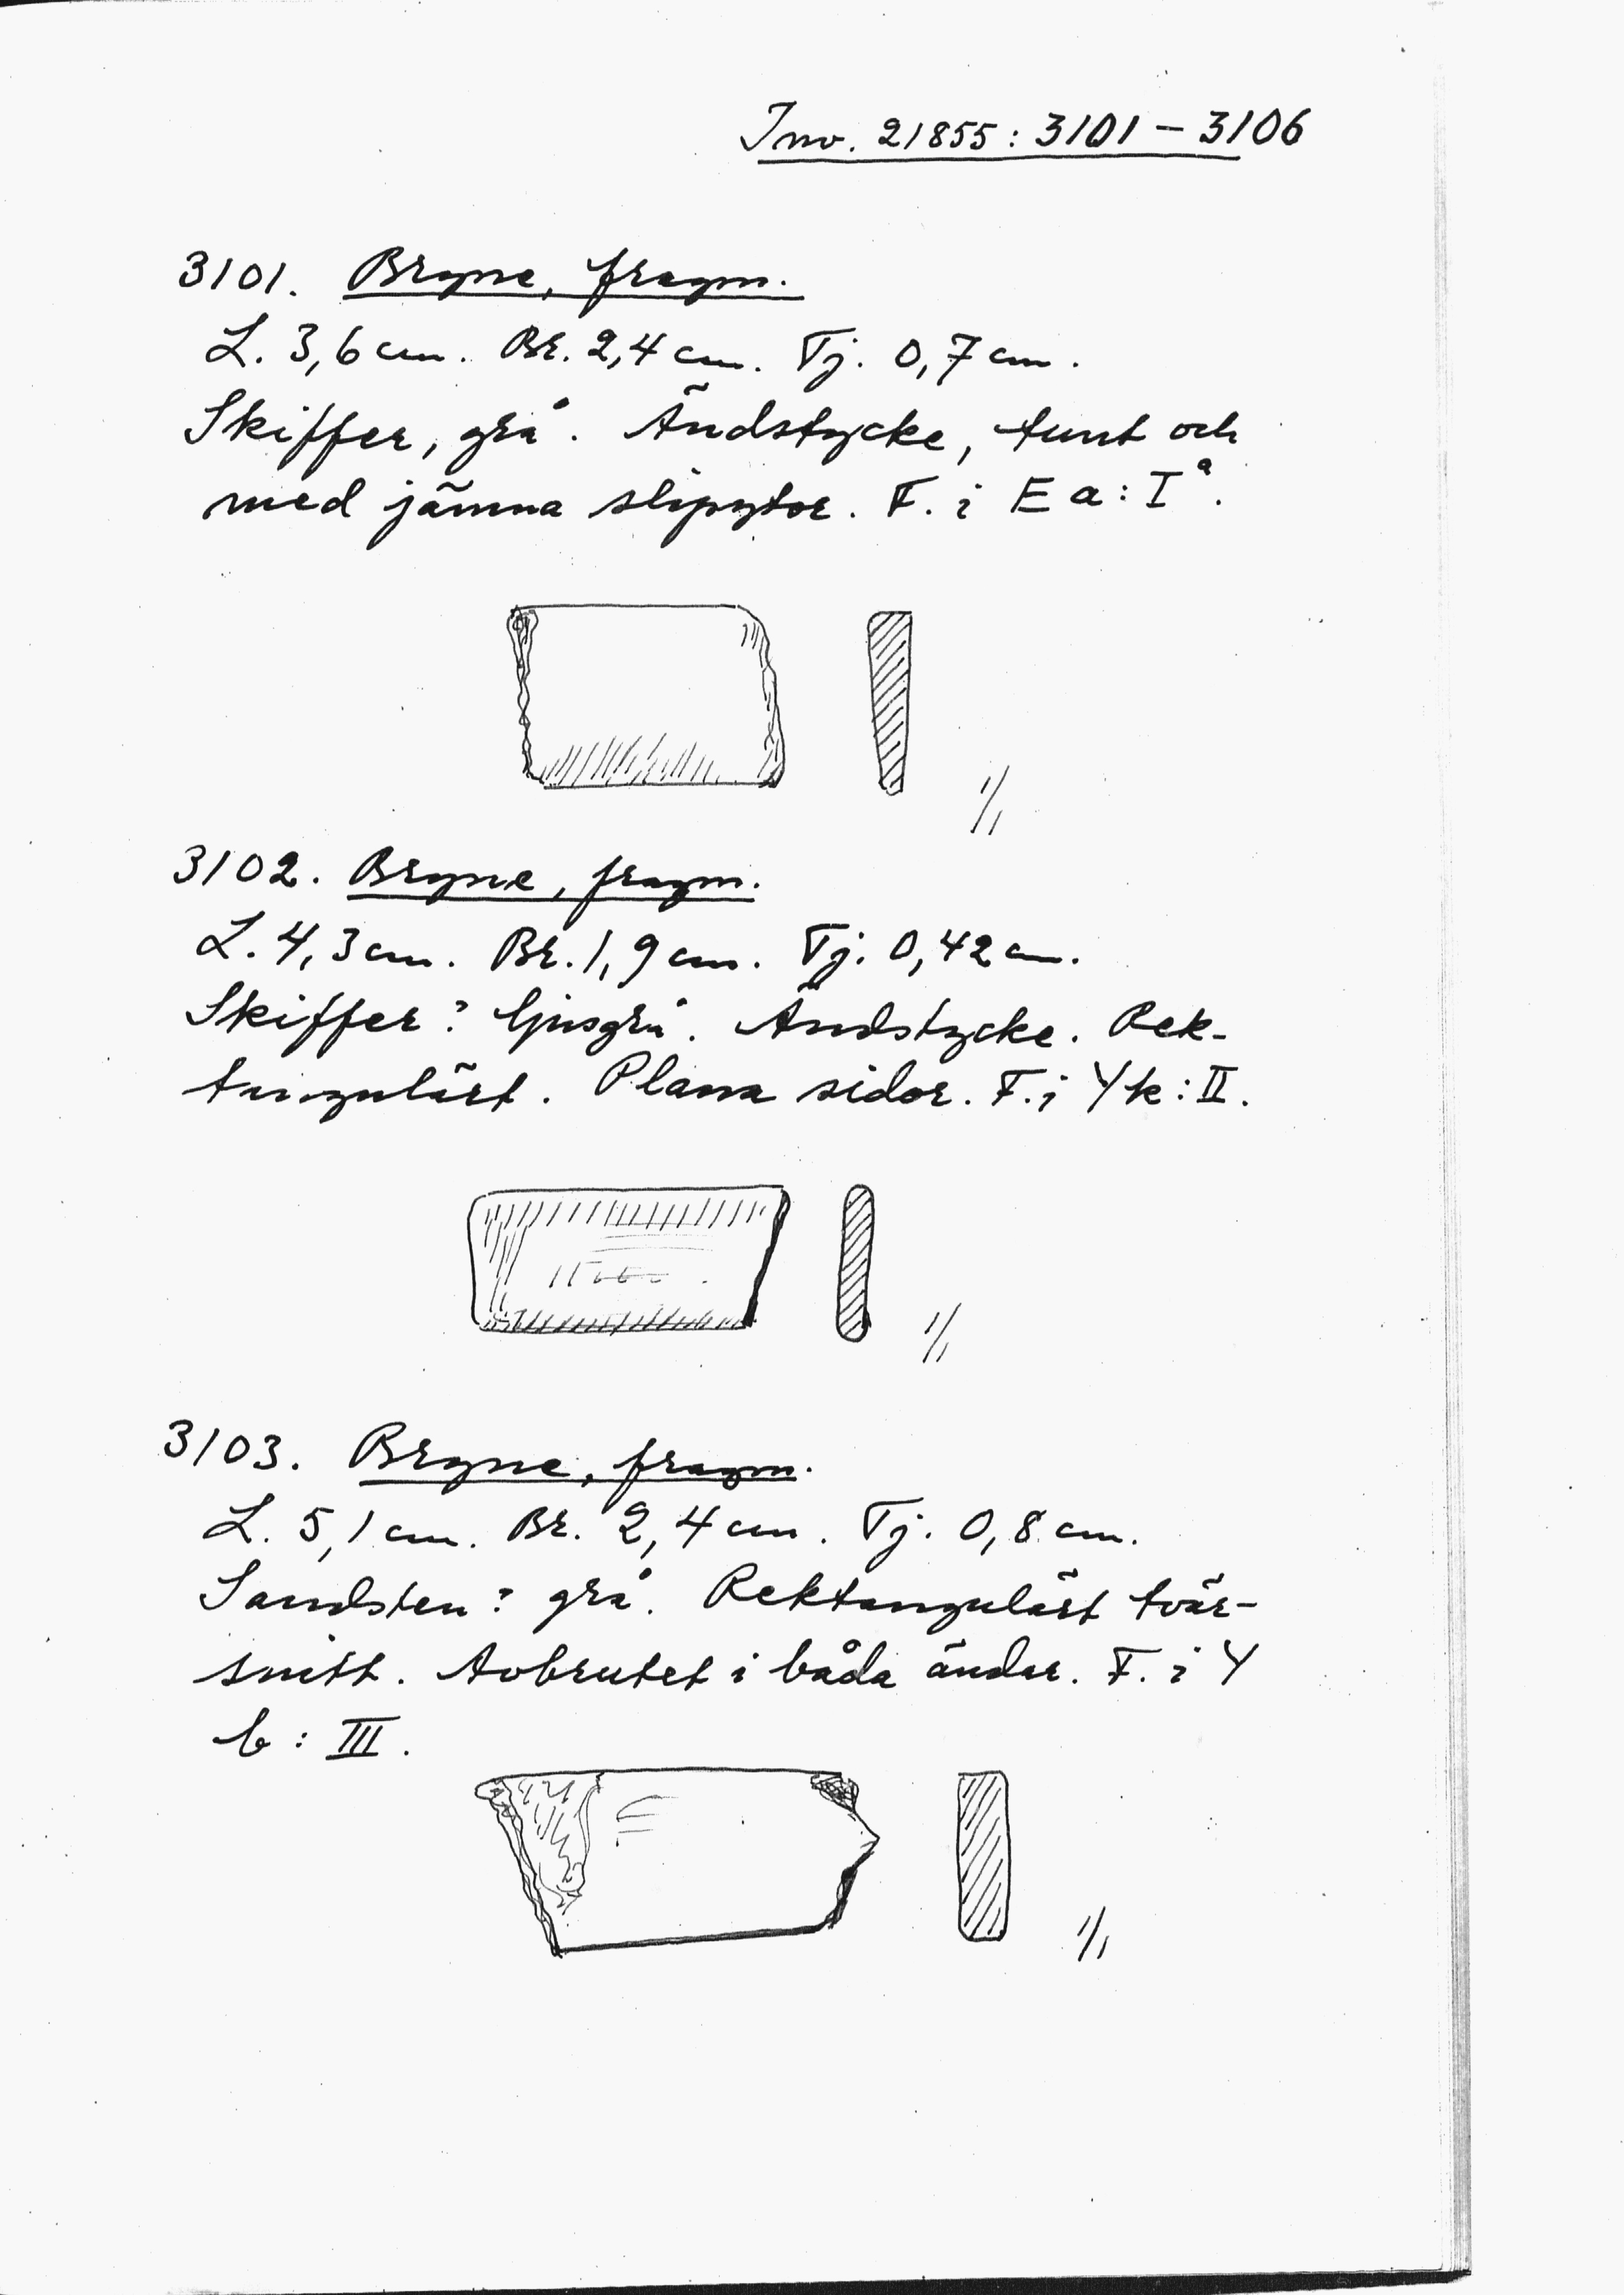 Inv. 21855 : 3101 – 3106
3101. Bryne, fragm.
L. 3,6 cm. Br. 2,4 cm. Tj. 0,7 cm.
Skiffer, grå. Ändstycke, tunt och
med jämna slipytor. F. i E a : I a.
1/1
3102. Bryne, fragm.
L. 4,3 cm. Br. 1,9 cm. Tj. 0,42 cm.
Skiffer? ljusgrå. Ändstycke. Rek-
tangulärt. Plana sidor. F. i Y k : II.
1/1
3103. Bryne, fragm.
L. 5,1 cm. Br. 2,4 cm. Tj. 0,8 cm.
Sandsten? grå. Rektangulärt tvär-
snitt. Avbrutet i båda ändar. F. i Y
b : III.
1/1